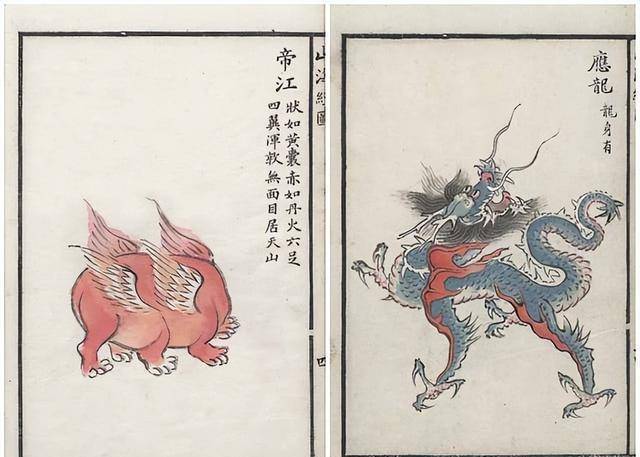 山海經圖
四
帝江
狀如黃囊赤如丹火六足
四翼渾敦無面目居天山
應龍
龍身有